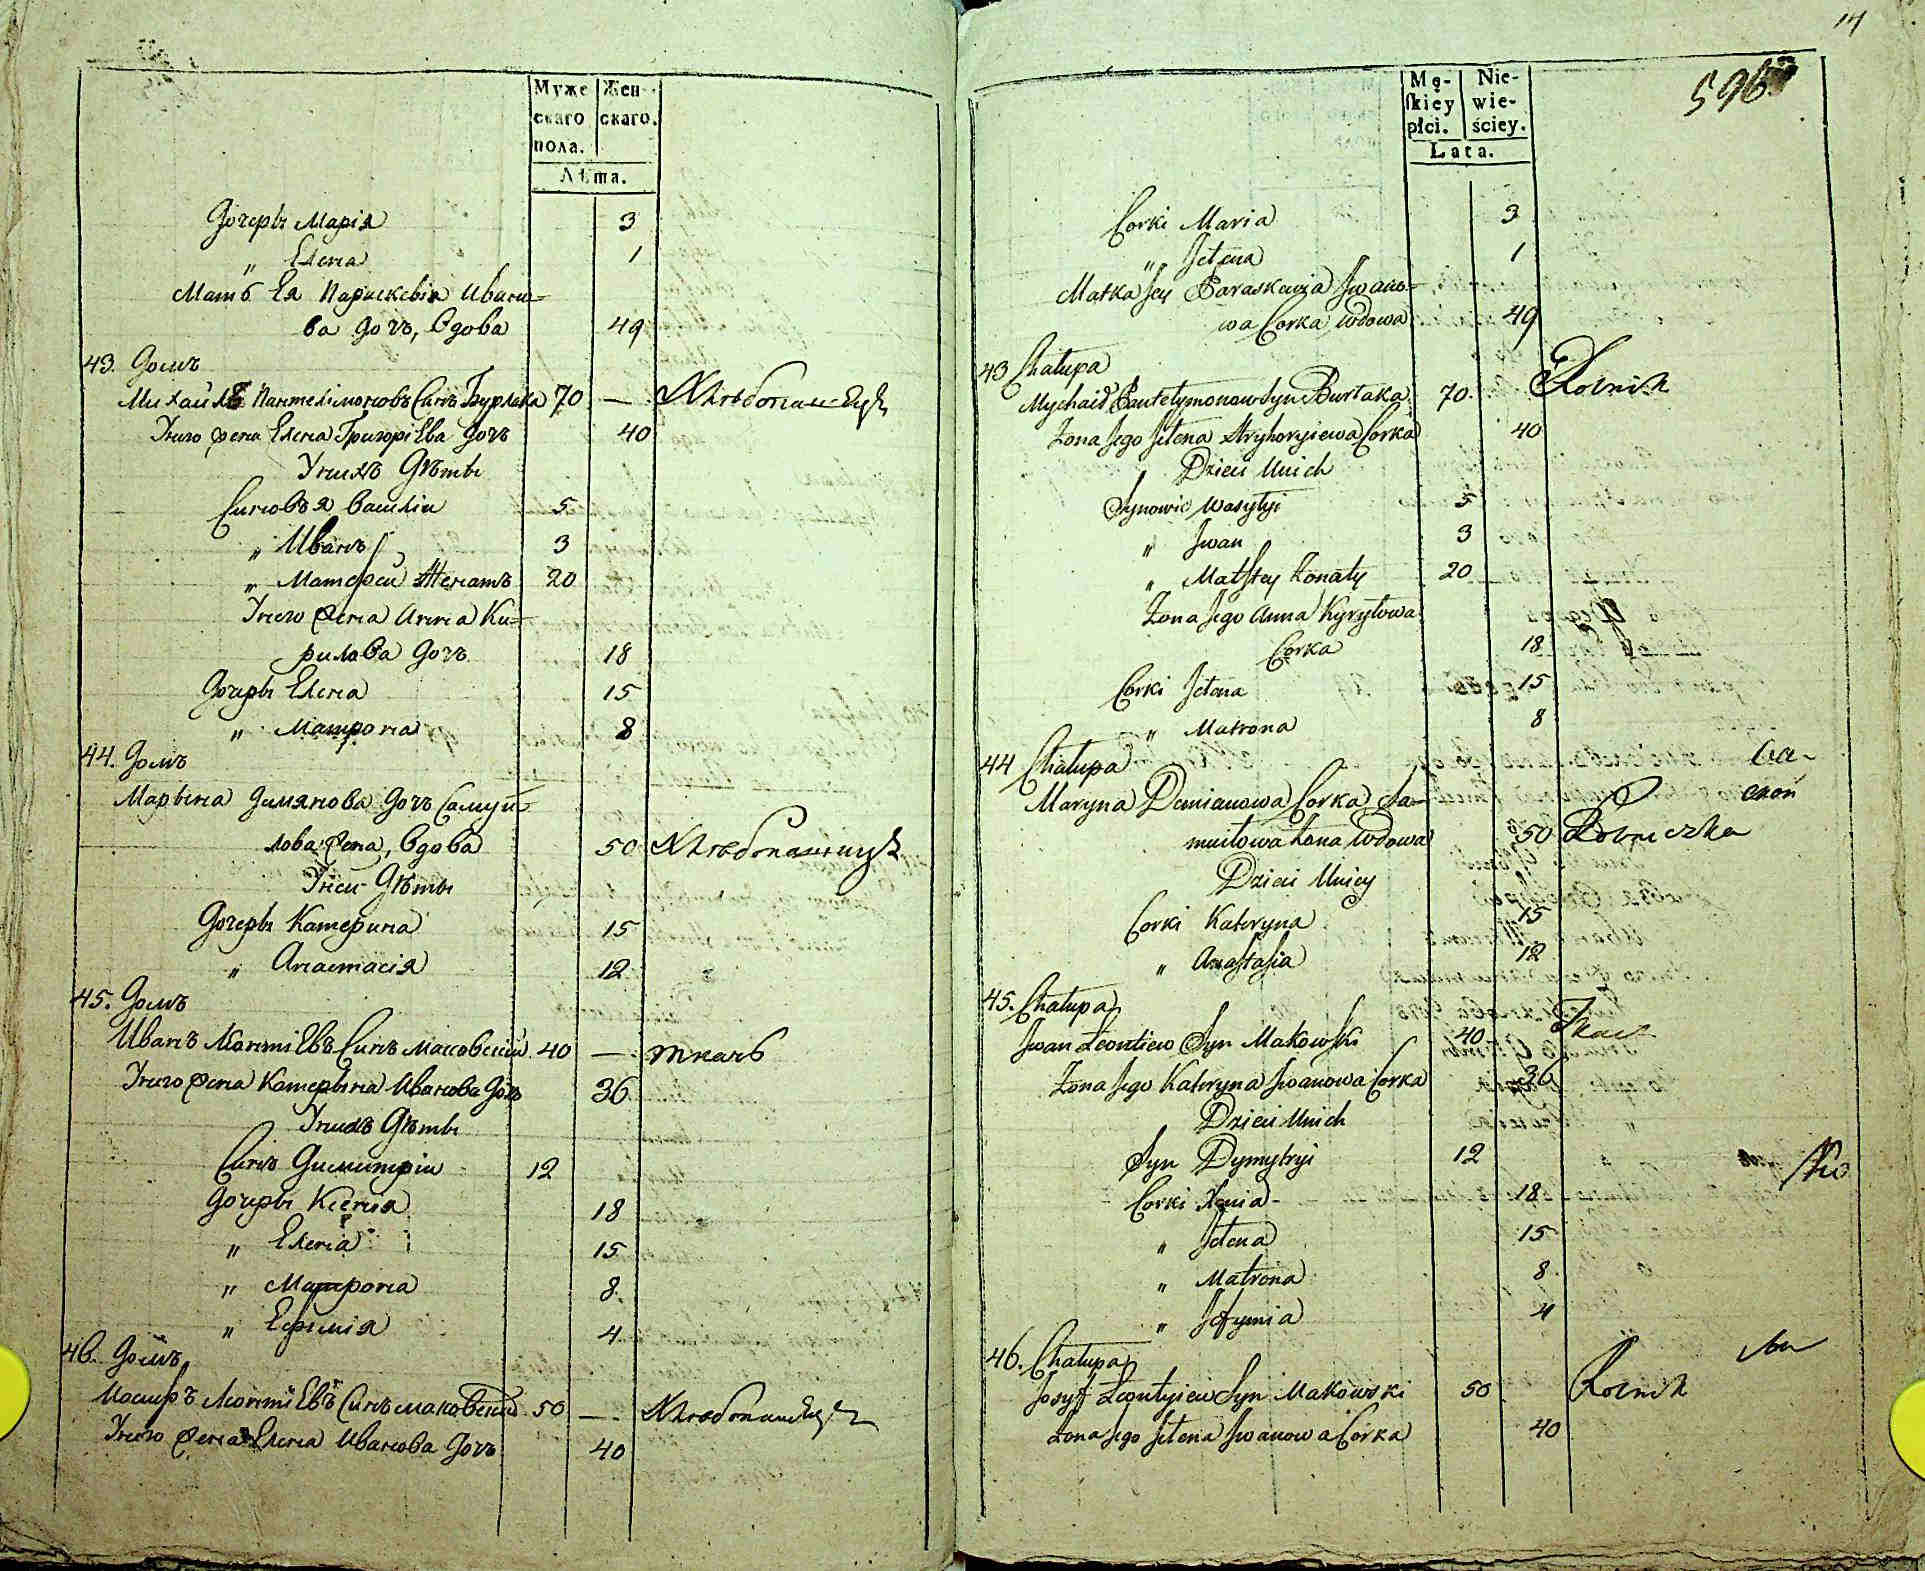 Муже
скаго
пола.
Жен-
скаго.
Лѣта.
Дочеры Марія 3
„ Елена 1
Мать Ея Параскевія Ивано=
ва дочь, вдова 49
43. Домъ
Михайлъ Пантелімоновъ Сынъ Бурлака 70 — Хлѣбопашецъ
У него жена Елена Григоріева Дочь 40
У нихъ Дѣты
Сыновья Василіи 5
„ Иванъ 3
„ Матфей Женатъ 20
У него жена Анна Ки=
рилова дочь 18
Дочеры Елена 15
„ Матрона 8
44. Домъ
Марына Димянова дочь Самуй=
лова жена, вдова 50 Хлѣбопашица
У неи Дѣты
Дочеры Катерина 15
„ Анастасія 12
45. Домъ
Иванъ Леонтіевъ Сынъ Маковскій 40 — ткачь
У него жена Катерына Иванова Дочь 36
У нихъ Дѣты
Сынъ Димитріи 12
Дочеры Ксенія 18
„ Елена 15
„ Матрона 8
„ Ефимія 4
46. Домъ
Иосифъ Леонтіевъ Сынъ Маковскій 50 — Хлѣбопашецъ
У него жена Елена Иванова Дочь 40
14
596
Mę-
ſkiey
płci.
Nie-
wie-
ściey.
Lata.
Corki Maria 3
„ Jełena 1
Matka Jey Paraskewia Jwano=
wa Corka wdowa 49
43 Chałupa
Mychaił Pantełymonow Syn Burłaka 70 Rolnik
Żona Jego Jełena Hryhoryiewa Corka 40
Dzieci Unich
Synowie Wasylyi 5
„ Jwan 3
„ Matftey Żonaty 20
Żona Jego Anna Kyryłowa
Corka 18
Corki Jełena 15
„ Matrona 8
44 Chałupa
Maryna Demianowa Corka Sa=
muiłowa Żona wdowa 50 Rolniczka
Dzieci Unicy
Corki Kateryna 15
„ Anastasia 12
45. Chałupa
Jwan Leontiew Syn Makowski 40 Tkacz
Żona Jego Kateryna Jwanowa Corka 36
Dzieci Unich
Syn Dymytryi 12
Corki Xenia 18
„ Jełena 15
„ Matrona 8
„ Jefymia 4
46. Chałupa
Josyf Leontyiew Syn Makowski 50 Rolnik
Żona Jego Jełena Jwanowa Corka 40